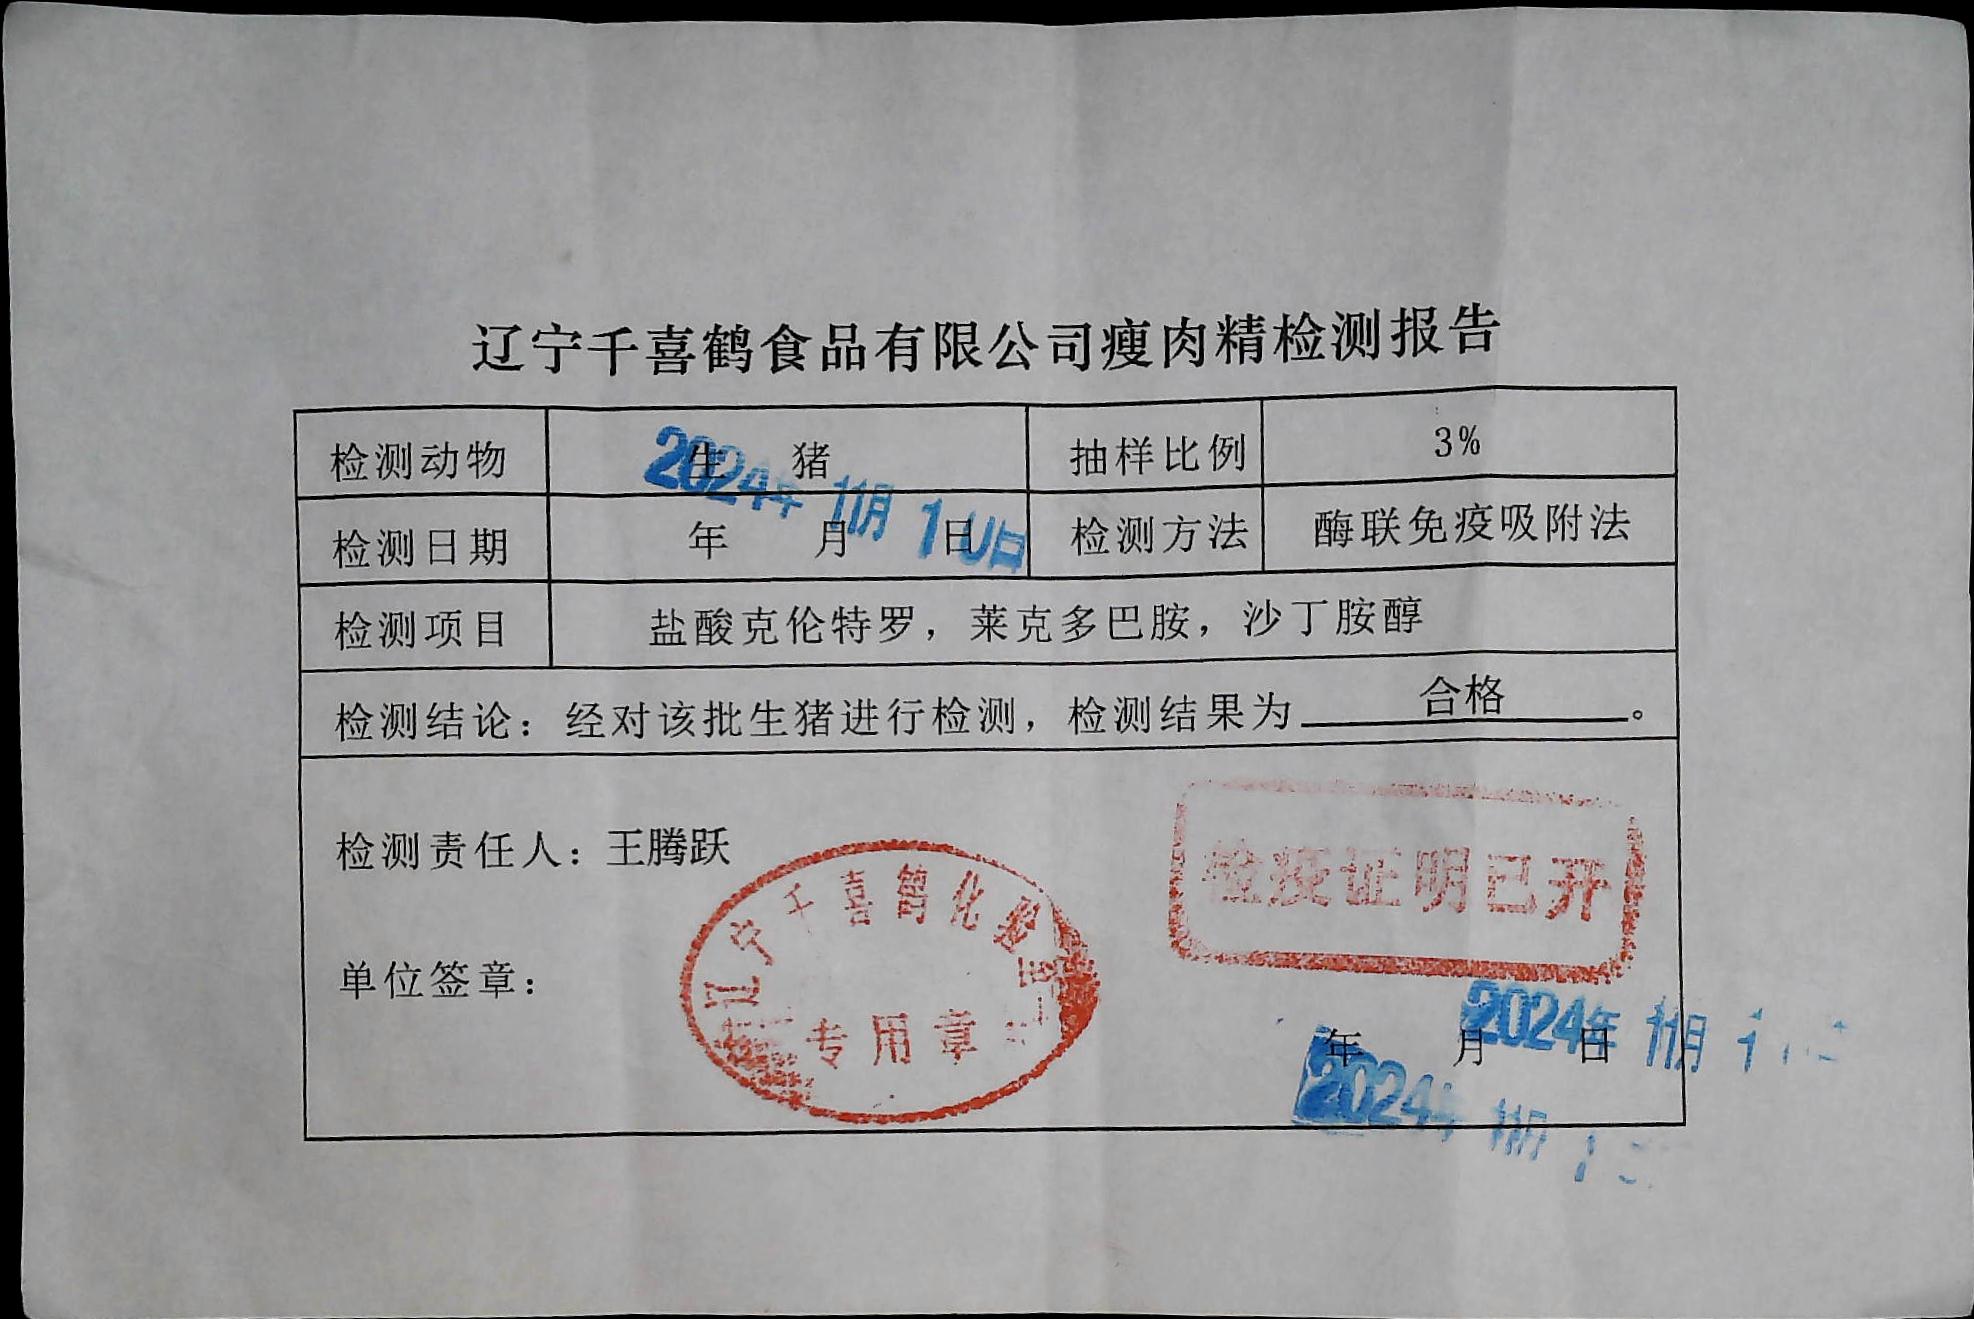 辽宁千喜鹤食品有限公司瘦肉精检测报告
检测动物 生 猪 抽样比例 3%
2024年 11月 10日
检测日期 年 月 日 检测方法 酶联免疫吸附法
检测项目 盐酸克伦特罗，莱克多巴胺，沙丁胺醇
检测结论：经对该批生猪进行检测，检测结果为 合格 。
检测责任人：王腾跃
检疫证明已开
辽宁千喜鹤化验室
专用章
单位签章：
年 月 日
2024年 11月 1
2024年 11月 1